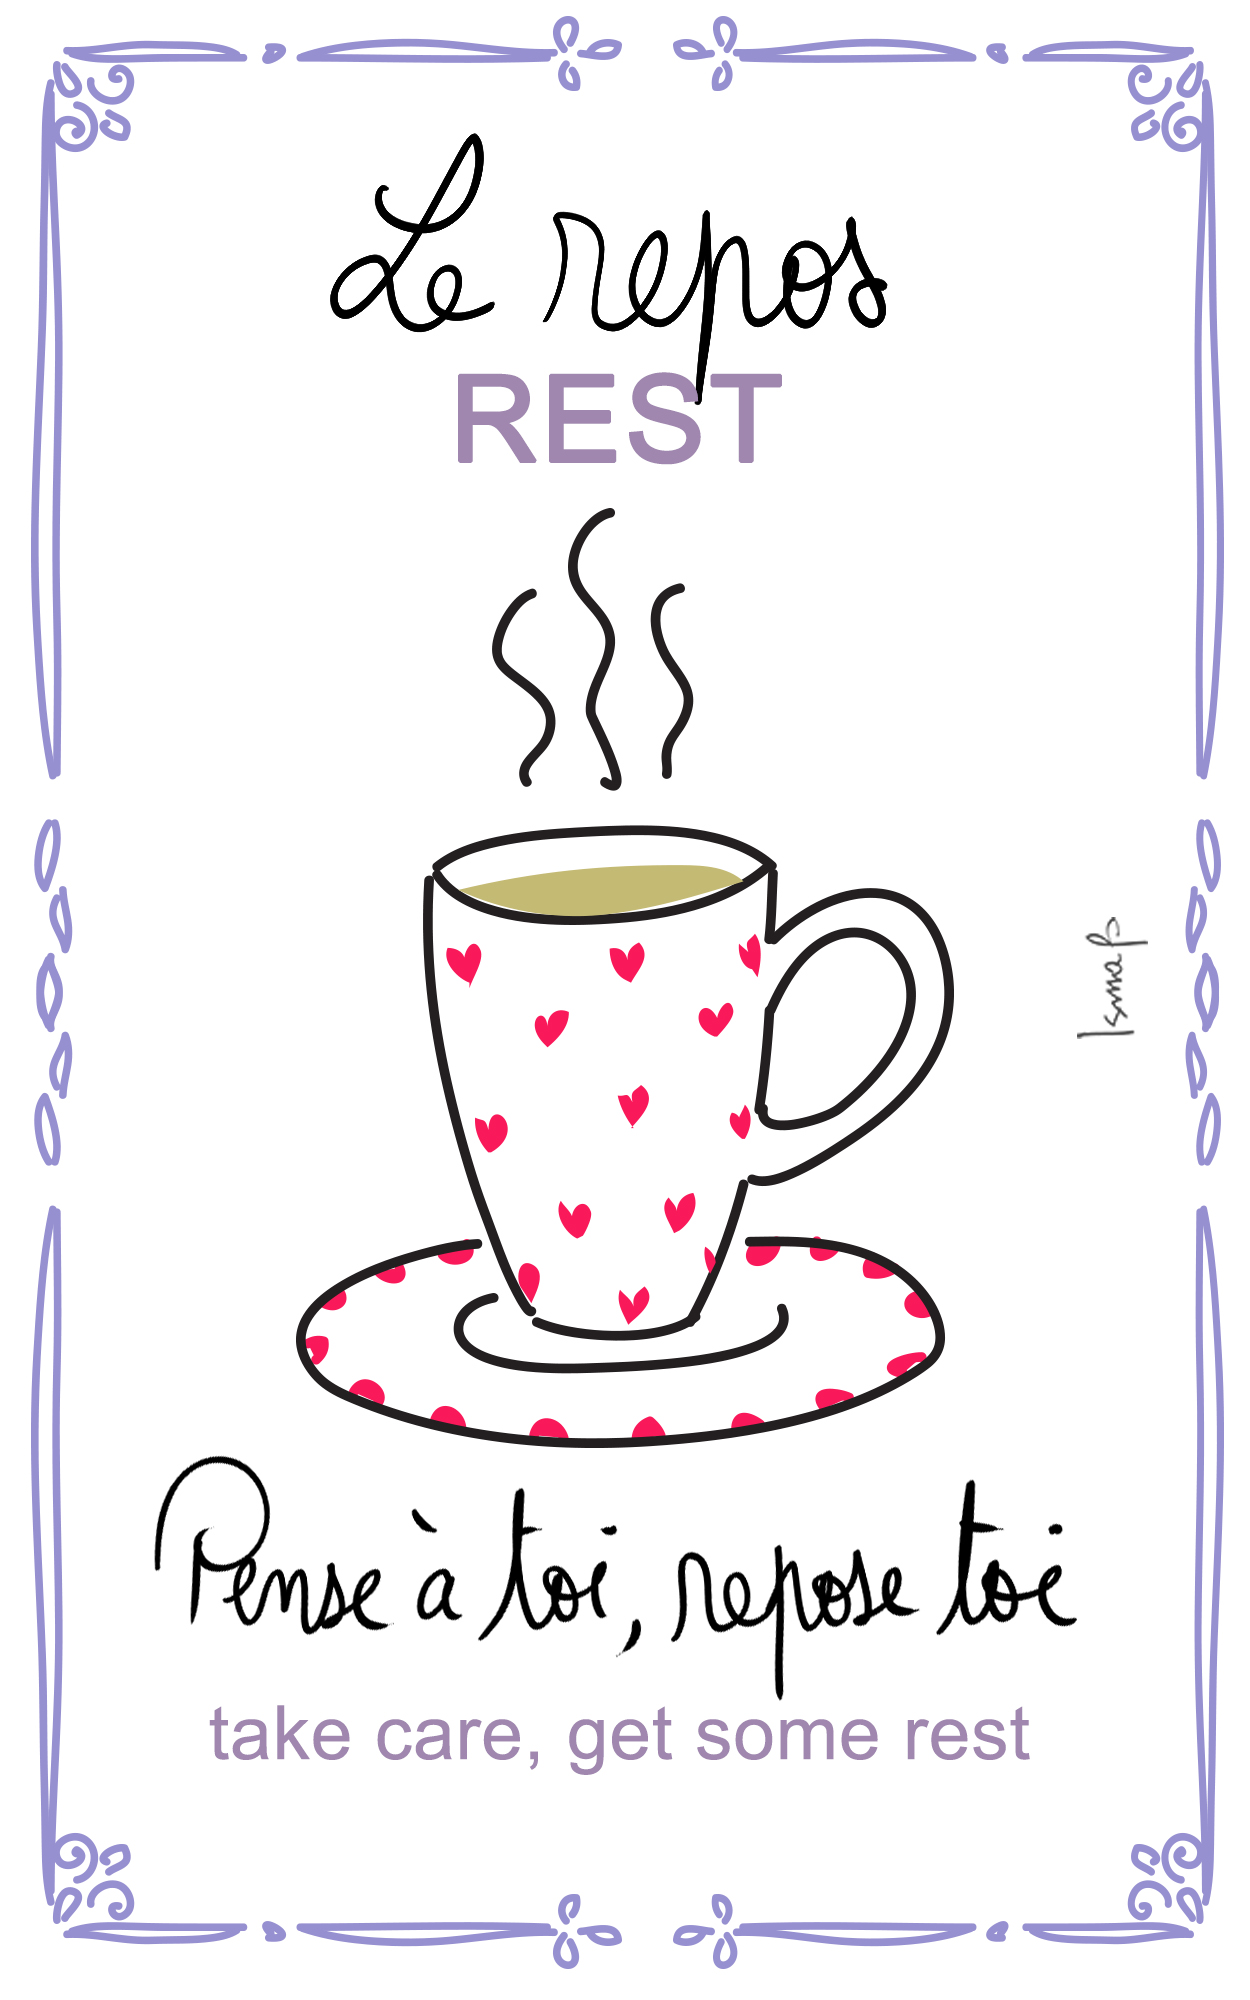 Le repos
REST
Ismaß
Pense à toi, repose toi
take care, get some rest